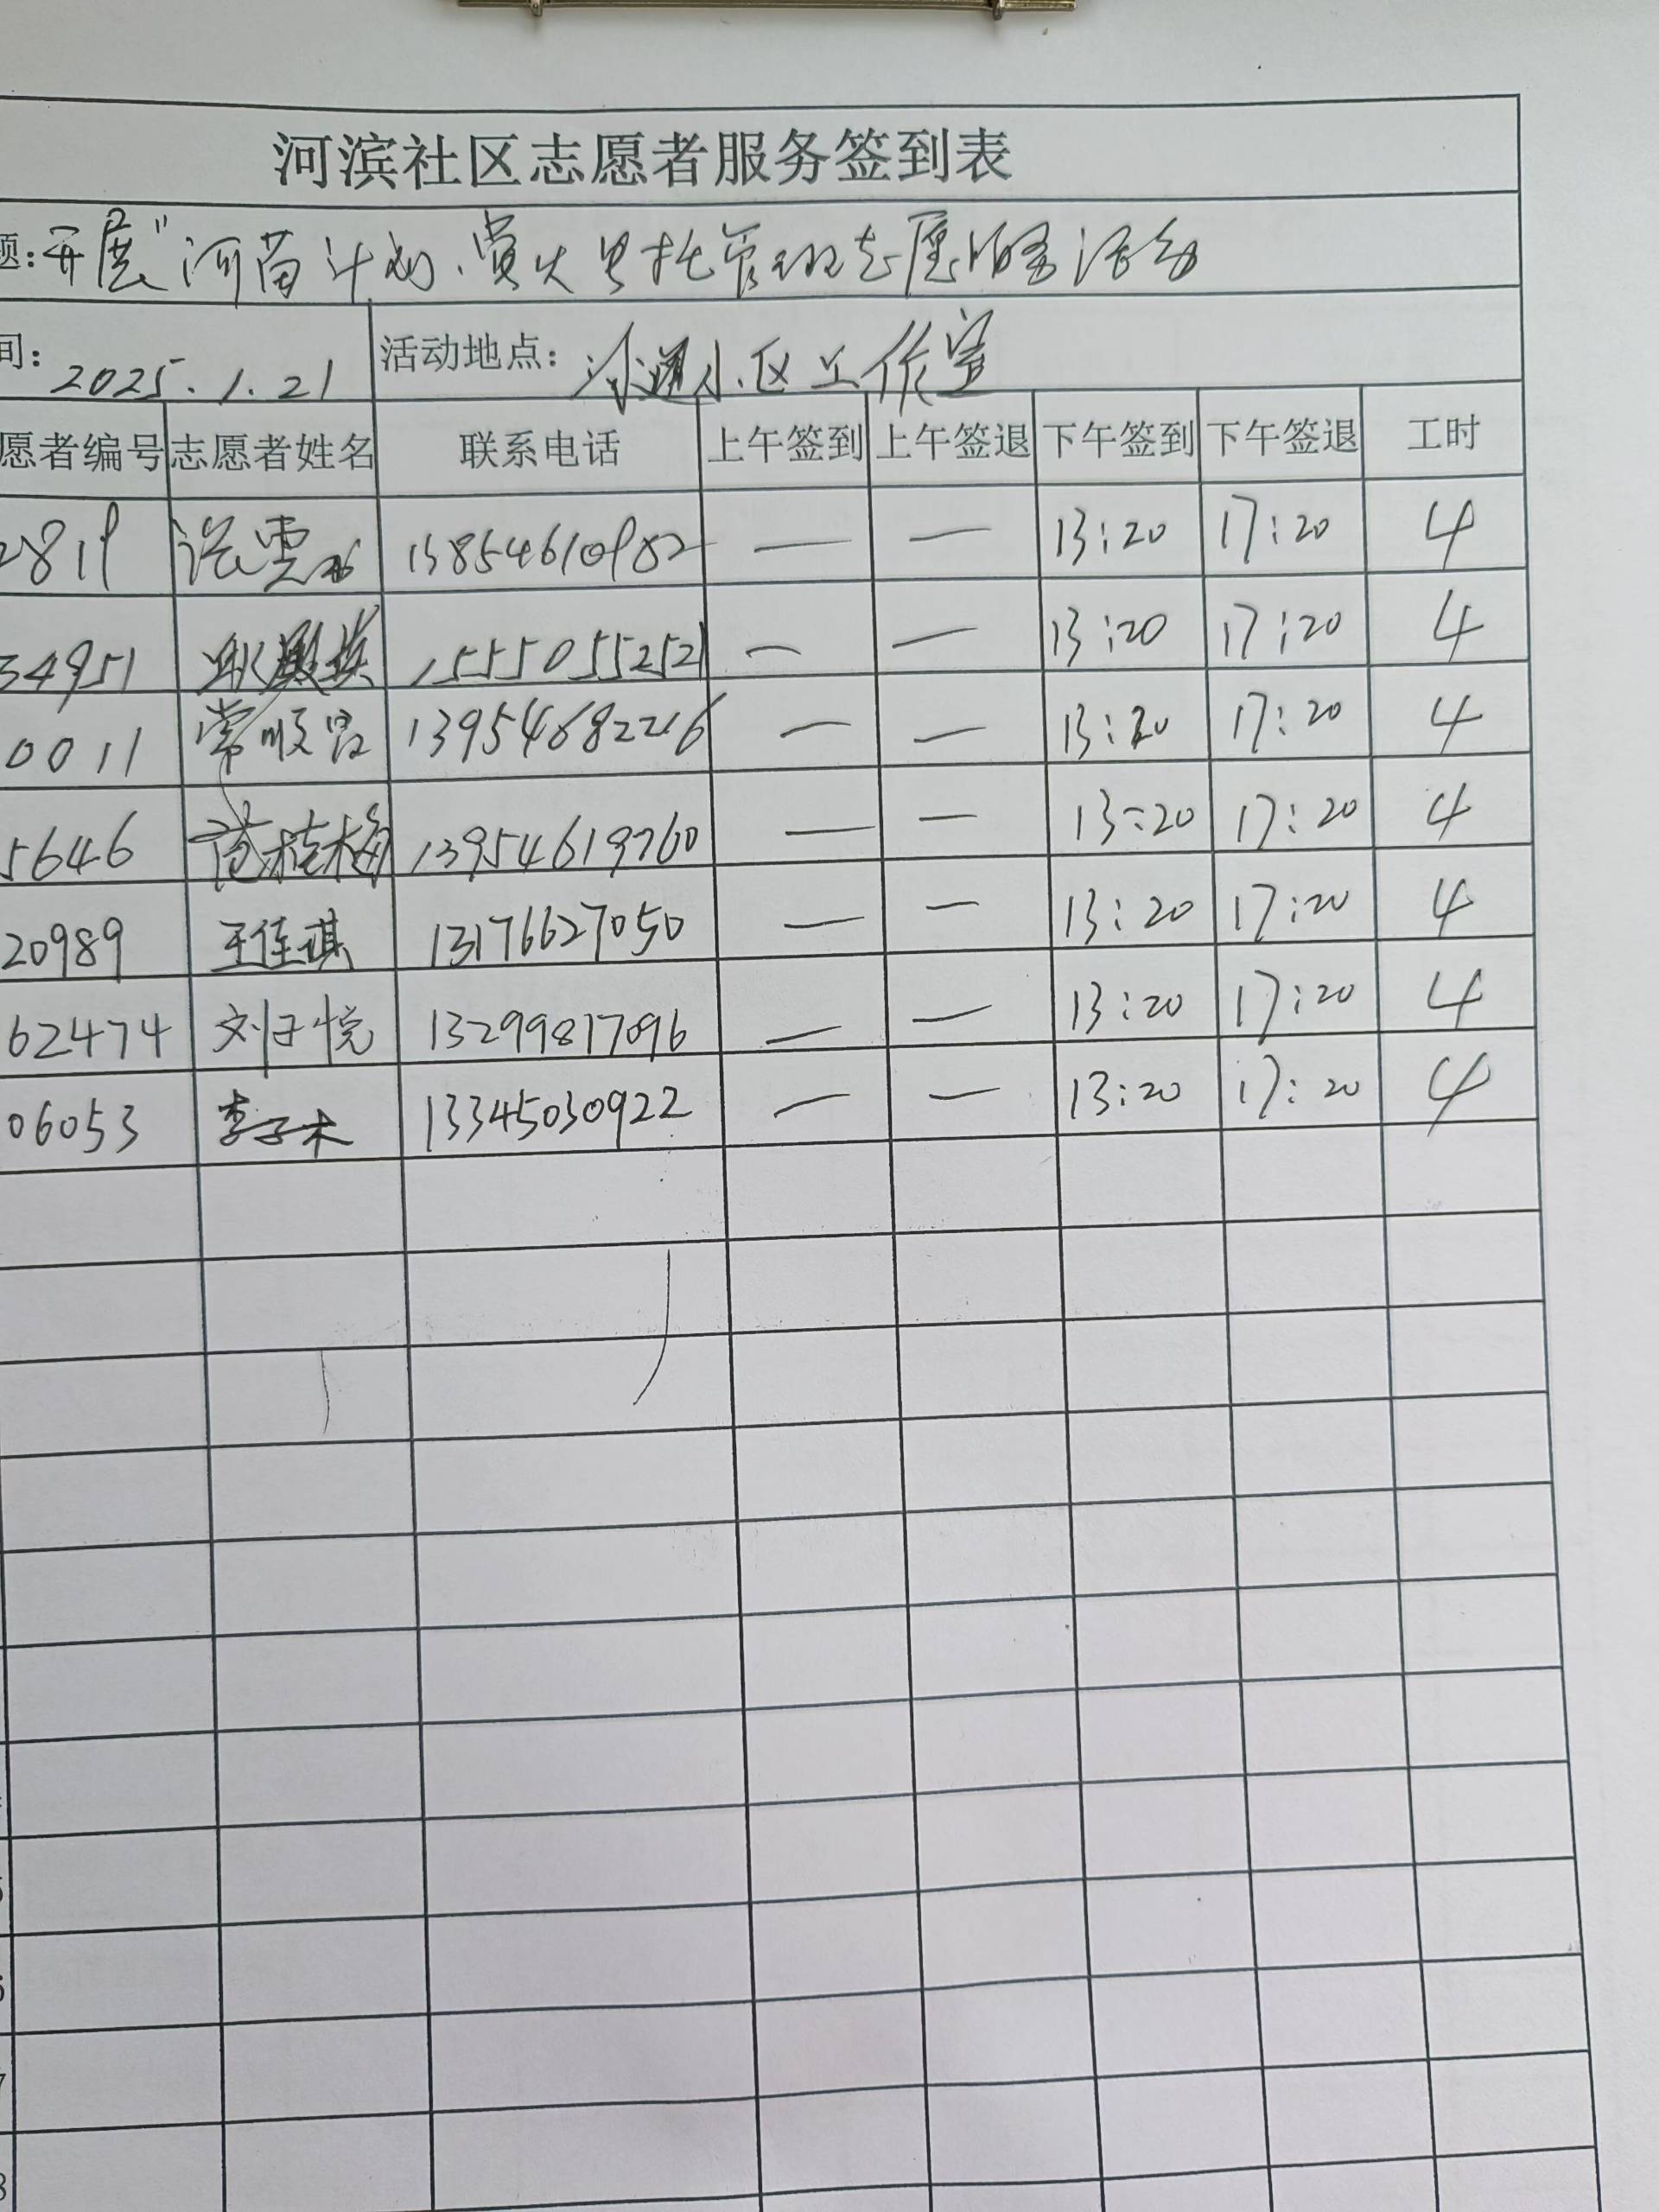 河滨社区志愿者服务签到表
题:开展"河苗计划·萤火里托管班志愿服务活动
间: 2025.1.21 活动地点: 小区工作室
愿者编号 志愿者姓名 联系电话 上午签到 上午签退 下午签到 下午签退 工时
2819 13854610982 — — 13:20 17:20 4
34951 15550552521 — — 13:20 17:20 4
0011 常顺 13954682216 — — 13:20 17:20 4
5646 范桂梅 13954619760 — — 13:20 17:20 4
20989 王佳琪 13176627050 — — 13:20 17:20 4
62474 刘子悦 13299817096 — — 13:20 17:20 4
06053 李子木 13345030922 — — 13:20 17:20 4